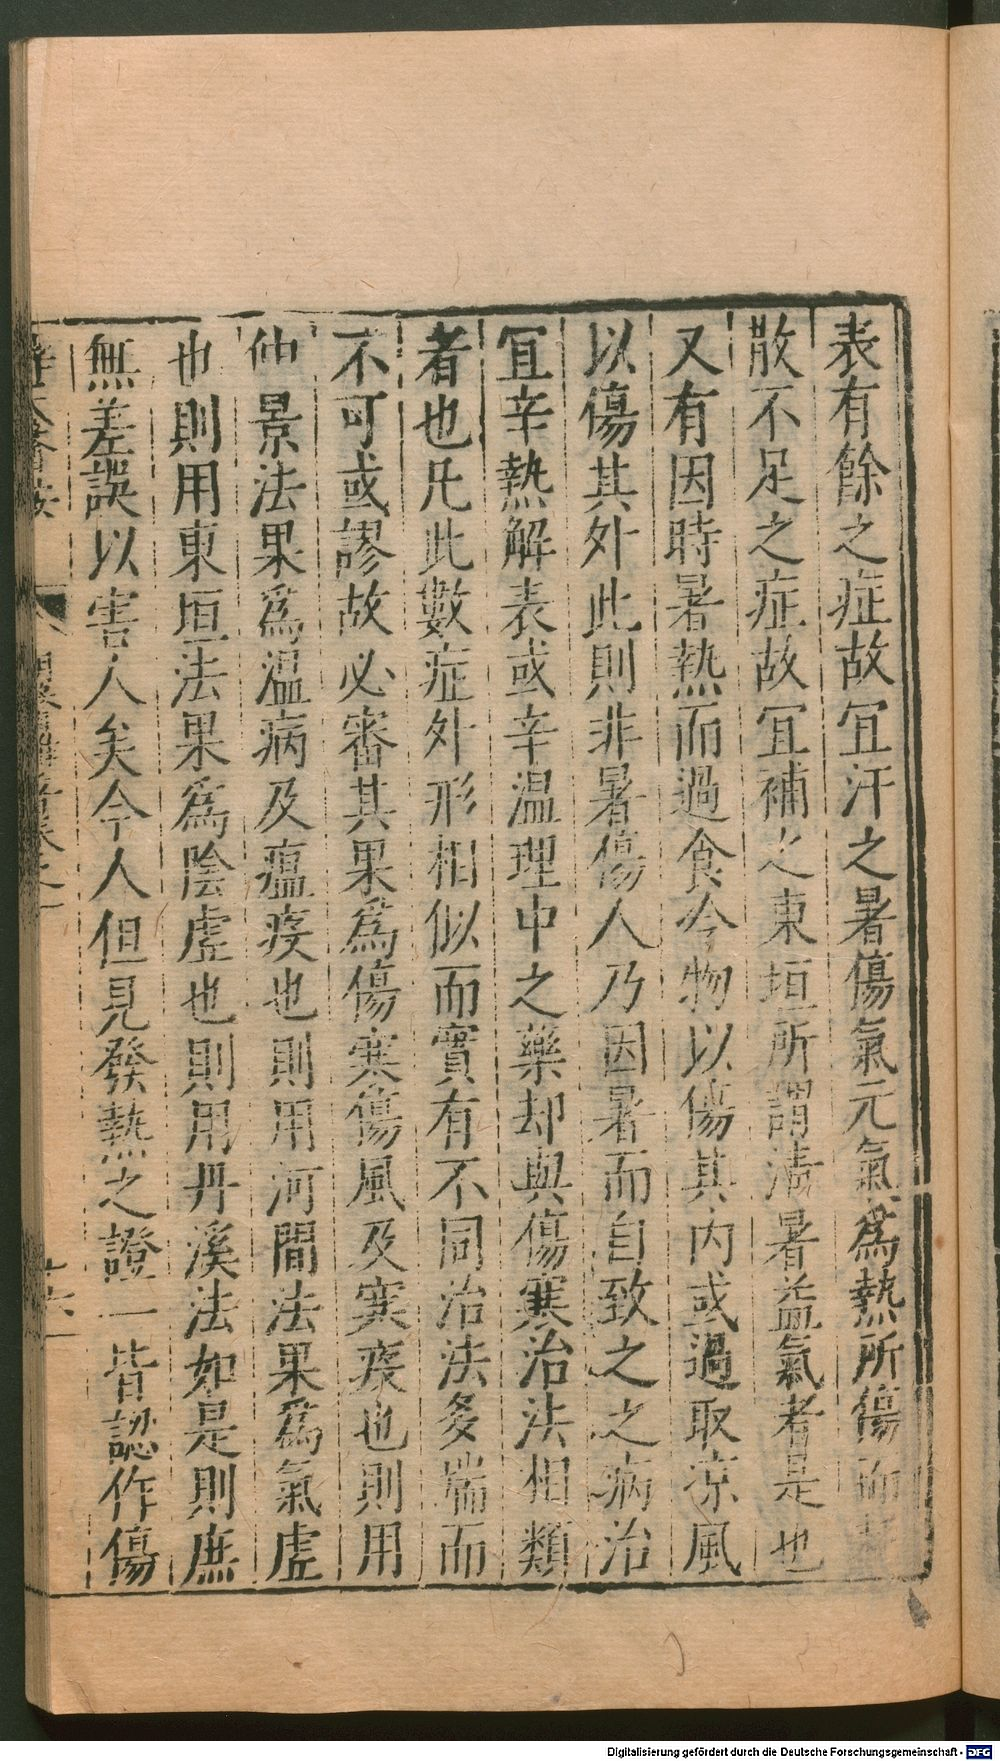 表有餘之症故宜汗之暑傷氣元氣為熱所傷而
散不足之症故宜補之東垣所謂清暑益氣者是也
又有因時暑熱而過食冷物以傷其內或過取凉風
以傷其外此則非暑傷人乃因暑而自致之之病治
宜辛熱解表或辛温理中之藥却與傷寒治法相類
者也凡此數症外形相似而實有不同治法多端而
不可或謬故必審其果為傷寒傷風及寒疫也則用
仲景法果為温病及瘟疫也則用河間法果為氣虛
也則用東垣法果為陰虛也則用丹溪法如是則庶
無差誤以害人矣今人但見發熱之證一皆認作傷
Digitalisierung gefördert durch die Deutsche Forschungsgemeinschaft - DFG